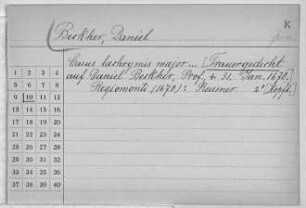 K
Beckher, Daniel
Casus lachrymis major ... [Trauergedicht
auf Daniel Beckher, Prof., + 21. Jan. 1670.]
Regiomonti (1670): Reusner. 2° [Kopft.]
1 2 3 4
5 6 7 8
9 10 11 12
13 14 15 16
17 18 19 20
21 22 23 24
25 26 27 28
29 30 31 32
33 34 35 36
37 38 39 40